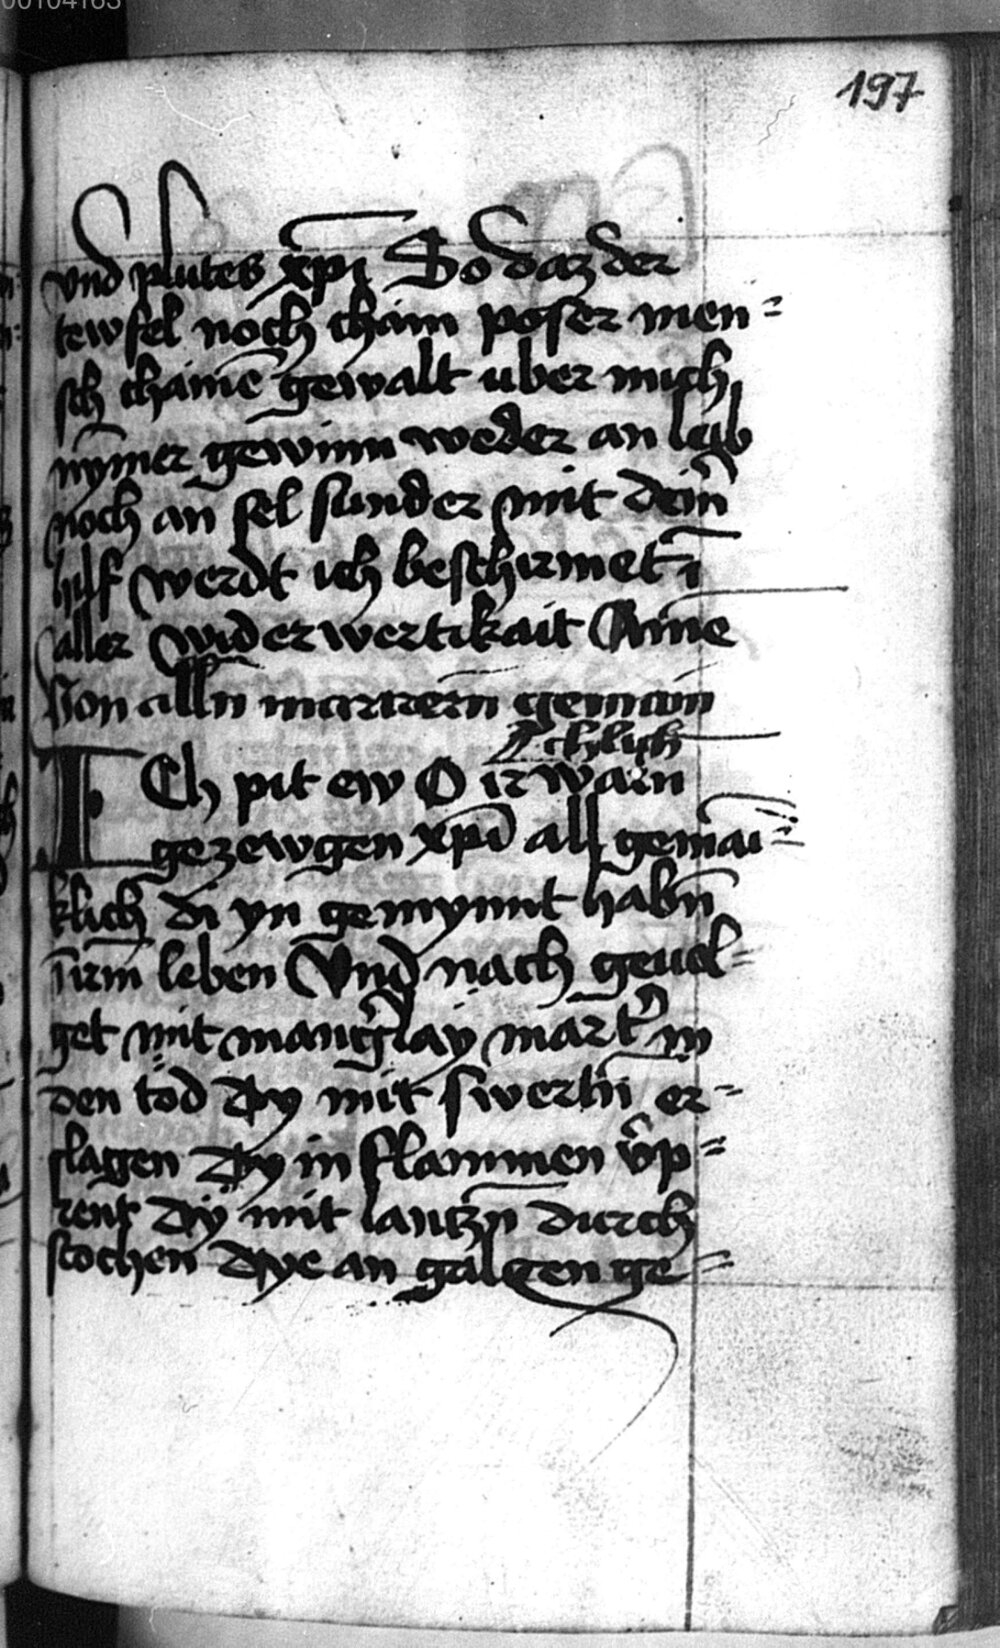 00104163
197
vnd plutes xp̄i So daz der
tewfel noch cham poser men⸗
sch chainē gewalt uber mich
nȳmer gewinn weder an leib
noch an sel sunder mit dein̄
hilf werdt ich beschirmet ī
aller widerwertikait Amē
Von alln̄ marrern̄ gemain
chlich
Ich pit ew O ir warn
gezewgen xp̄i all gemai⸗
klich di yn gemynnt habn̄
ī irm̄ leben Vnd nach geuol⸗
get mit mang̛lay mart̛ in
den tod dy mit swertn̄ er⸗
slagen dy in flammen v̛p⸗
rent dy mit lantzn̄ durch
stochen dye an galgen ge⸗